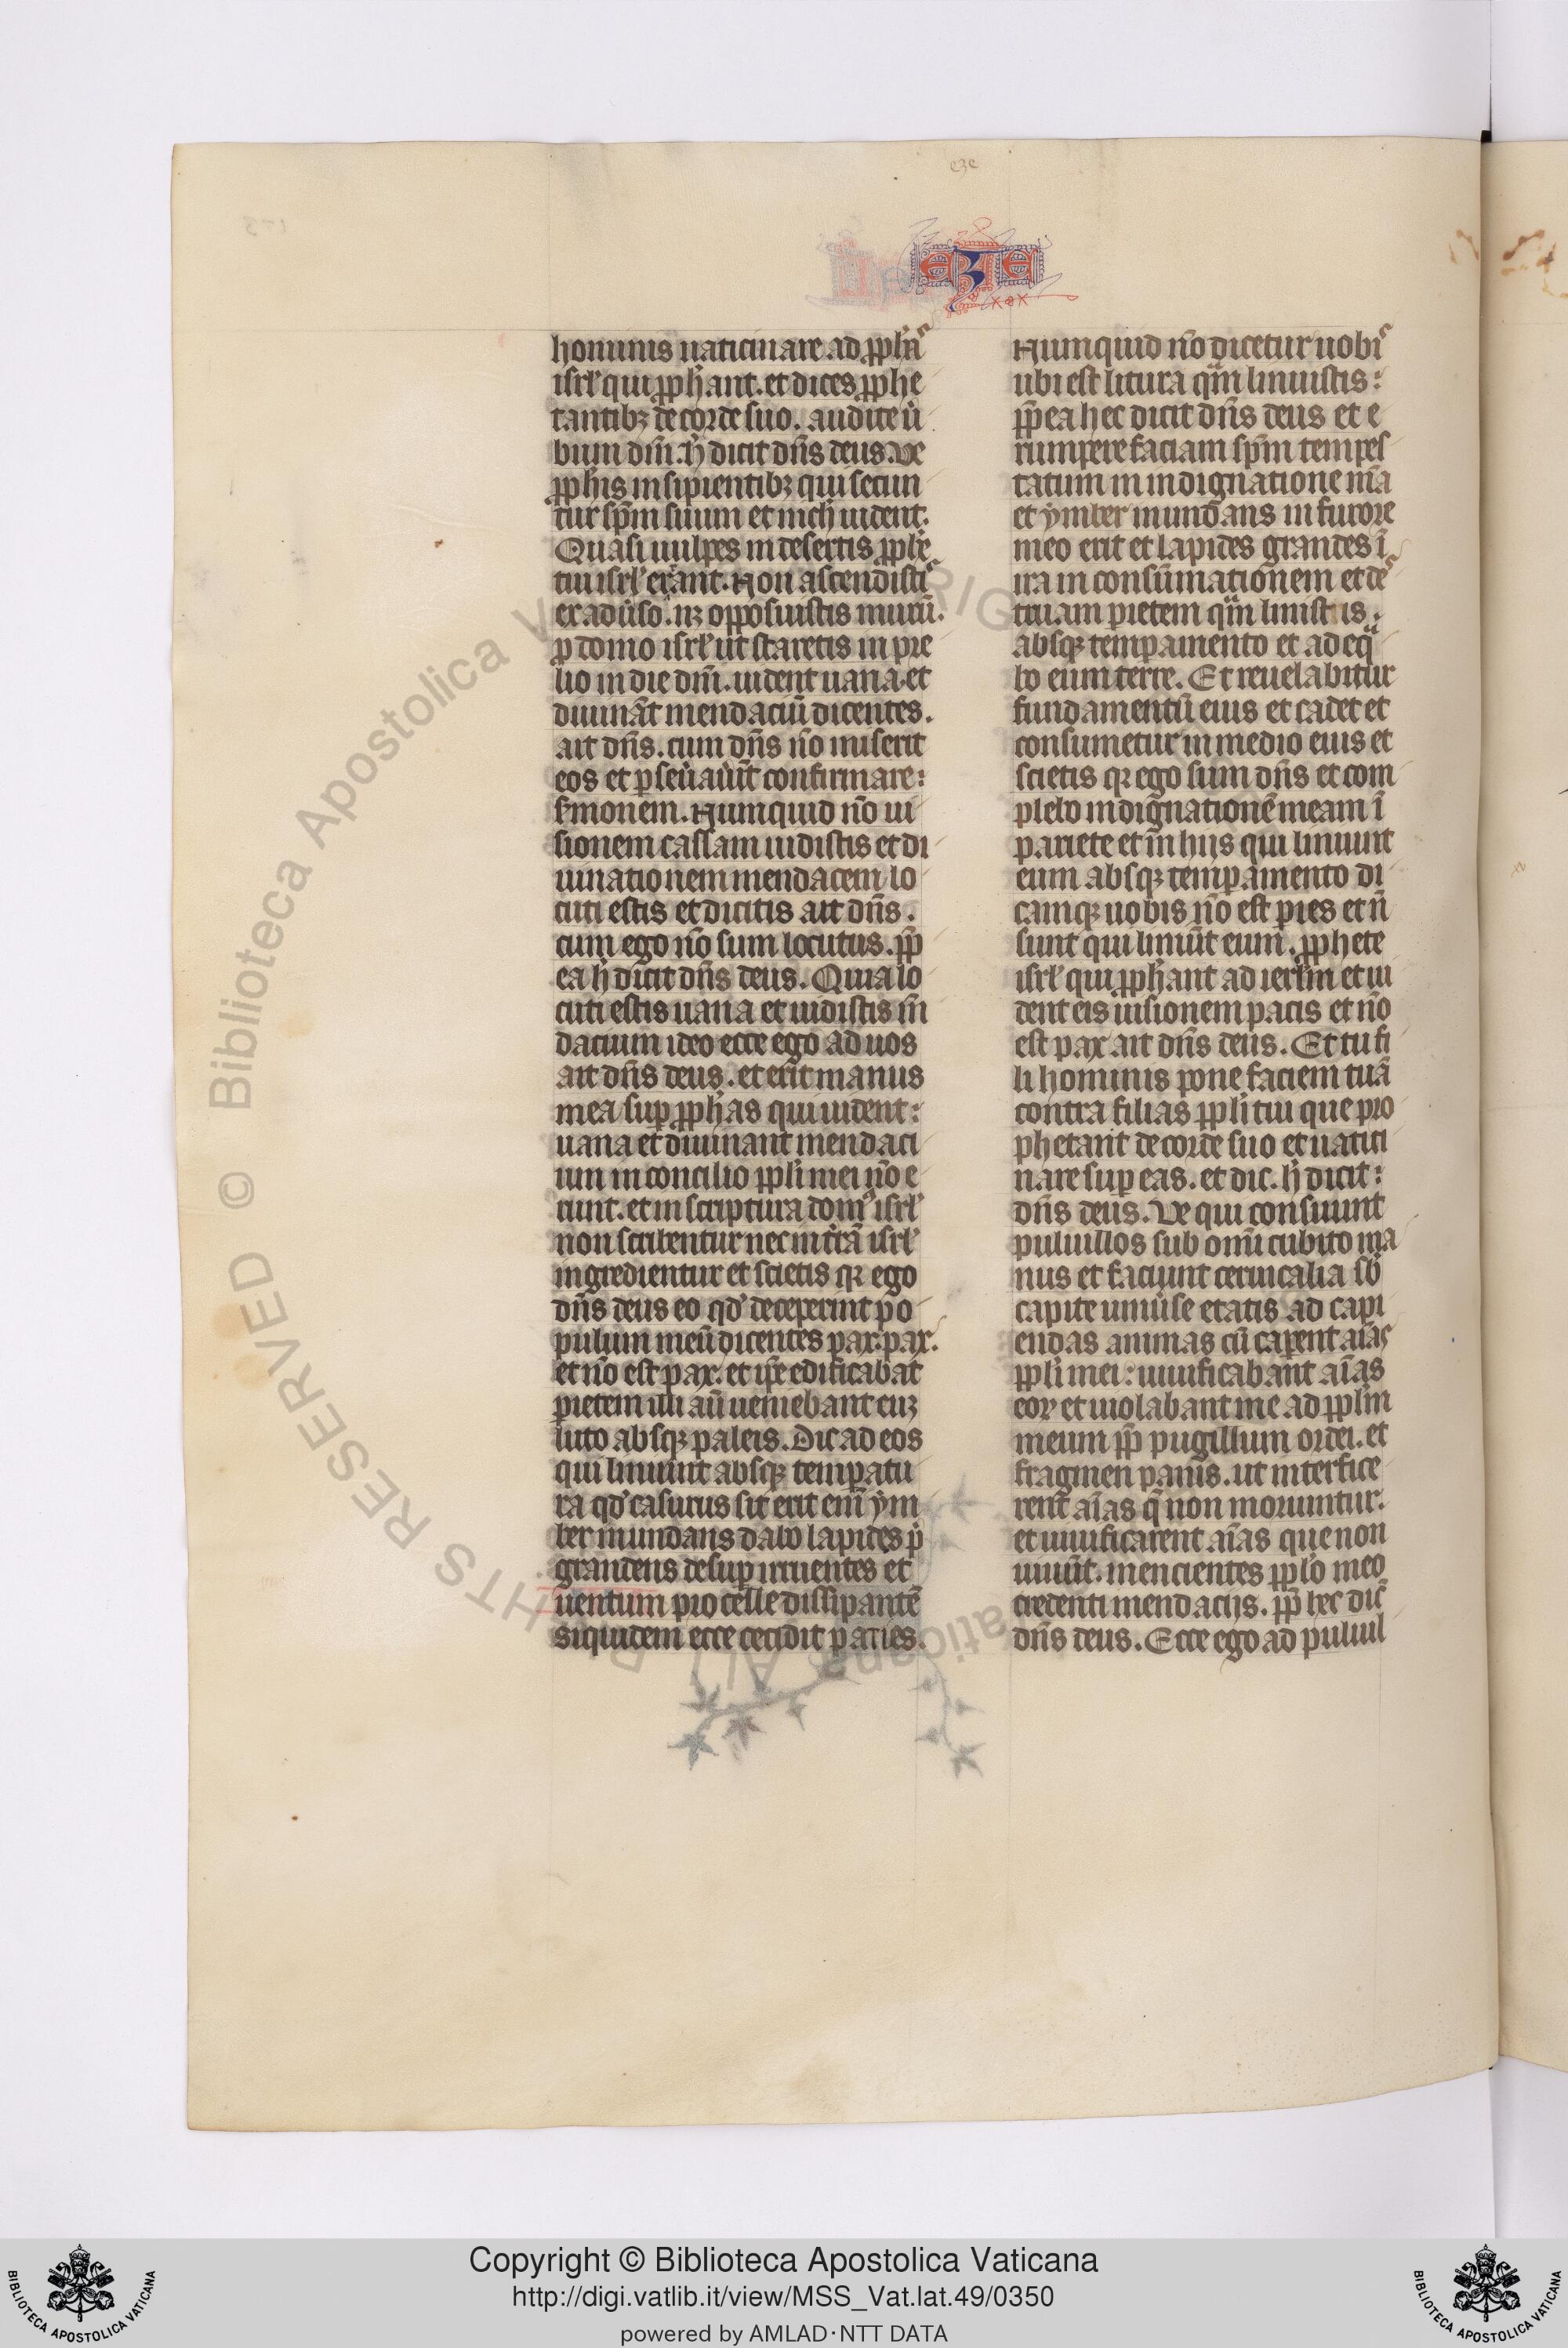 eze
EZE
hominis uaticinare ad ꝓph̃as
isrl̃ qui ꝓph̃ant. et dices ꝓphe
tantibꝫ de corde suo. audite ũ
bum dñi. h̃ dicit dñs deus. ve
ꝓph̃is insipientibꝫ qui secun
tur sp̃m suum et nich̃ uident.
Quasi uulpes in desertis ꝓph̃e
tui isrl̃ erant. Non ascendistis
ex adũso. nꝫ opposuistis murũ.
ꝑ domo isrl̃ ut staretis in pre
lio in die dñi. uident uana. et
diuinãt mendaciũ dicentes.
ait dñs. cum dñs nõ miserit
eos et ꝑseũauũt confirmare:
ẜmonem. Numquid nõ ui
sionem cassam uidistis et di
uinationem mendacem lo
cuti estis et dicitis ait dñs.
cum ego nõ sum locutus. ꝓp̃
ea h̃ dicit dñs deus. Quia lo
cuti estis uana et uidistis m̃
dacium ideo ecce ego ad uos
ait dñs deus. et erit manus
mea suꝑ ꝓph̃as qui uident:
uana et diuinant mendaci
um in concilio ppl̃i mei nõ e
runt. et in scriptura domꝰ isrl̃
non scribentur nec in tr̃ã isrl̃
ingredientur et scietis qꝛ ego
dñs deus eo qđ deceperint po
pulum meũ dicentes pax. pax.
et nõ est pax. et ip̃e edificabat
ꝑietem illi aũ ueniebant cuꝫ
luto absqꝫ paleis. Dic ad eos
qui liniunt absqꝫ temꝑatu
ra qđ casurus sit erit em̃ ym
ber inundans dabo lapides p̃
grandens desuꝑ irruentes et
uentum procelle dissipantẽ
siquidem ecce cecidit paries.
Numquid nõ dicetur uobis
ubi est litura qm̃ linuistis:
ꝓp̃ea hec dicit dñs deus et e
rumpere faciam sp̃m tempes
tatum in indignatione m̃a
et ymber inundans in furore
meo erit et lapides grandes ĩ
ira in consũmationem et des
truam ꝑietem qm̃ linistis.
absqꝫ temꝑamento et adeq̃
bo eum terre. Et reuelabitur
fundamentũ eius et cadet et
consumetur in medio eius et
scietis qꝛ ego sum dñs et com
plebo indignationẽ meam ĩ
pariete et in hiis qui liniunt
eum absqꝫ temꝑamento di
camqꝫ uobis nõ est ꝑies et ñ
sunt qui liniũt eum. ꝓphete
isrl̃ qui ꝓph̃ant ad ierl̃m et ui
dent eis uisionem pacis et nõ
est pax ait dñs deus. Et tu fi
li hominis pone faciem tuã
contra filias ppl̃i tui que pro
phetant de corde suo et uatici
nare suꝑ eas. et dic. h̃ dicit:
dñs deus. Ve qui consuunt
puluillos sub omĩ cubito ma
nus et faciunt ceruicalia sb̃
capite uniũse etatis ad capi
endas animas cũ caperent aĩas
ppl̃i mei: uiuificabant aĩas
eoꝝ et uiolabant me ad ppl̃m
meum ꝓp̃ pugillum ordei. et
fragmen panis. ut interfice
rent aĩas q̃ non moriuntur.
et uiuificarent aĩas que non
uiuũt. mencientes ppl̃o meo
credenti mendaciis. ꝓp̃ hec dic̃
dñs deus. Ecce ego ad puluil
© Biblioteca Apostolica Vaticana ALL RIGHTS RESERVED
Copyright © Biblioteca Apostolica Vaticana
http://digi.vatlib.it/view/MSS_Vat.lat.49/0350
powered by AMLAD·NTT DATA
BIBLIOTECA APOSTOLICA VATICANA
BIBLIOTECA APOSTOLICA VATICANA